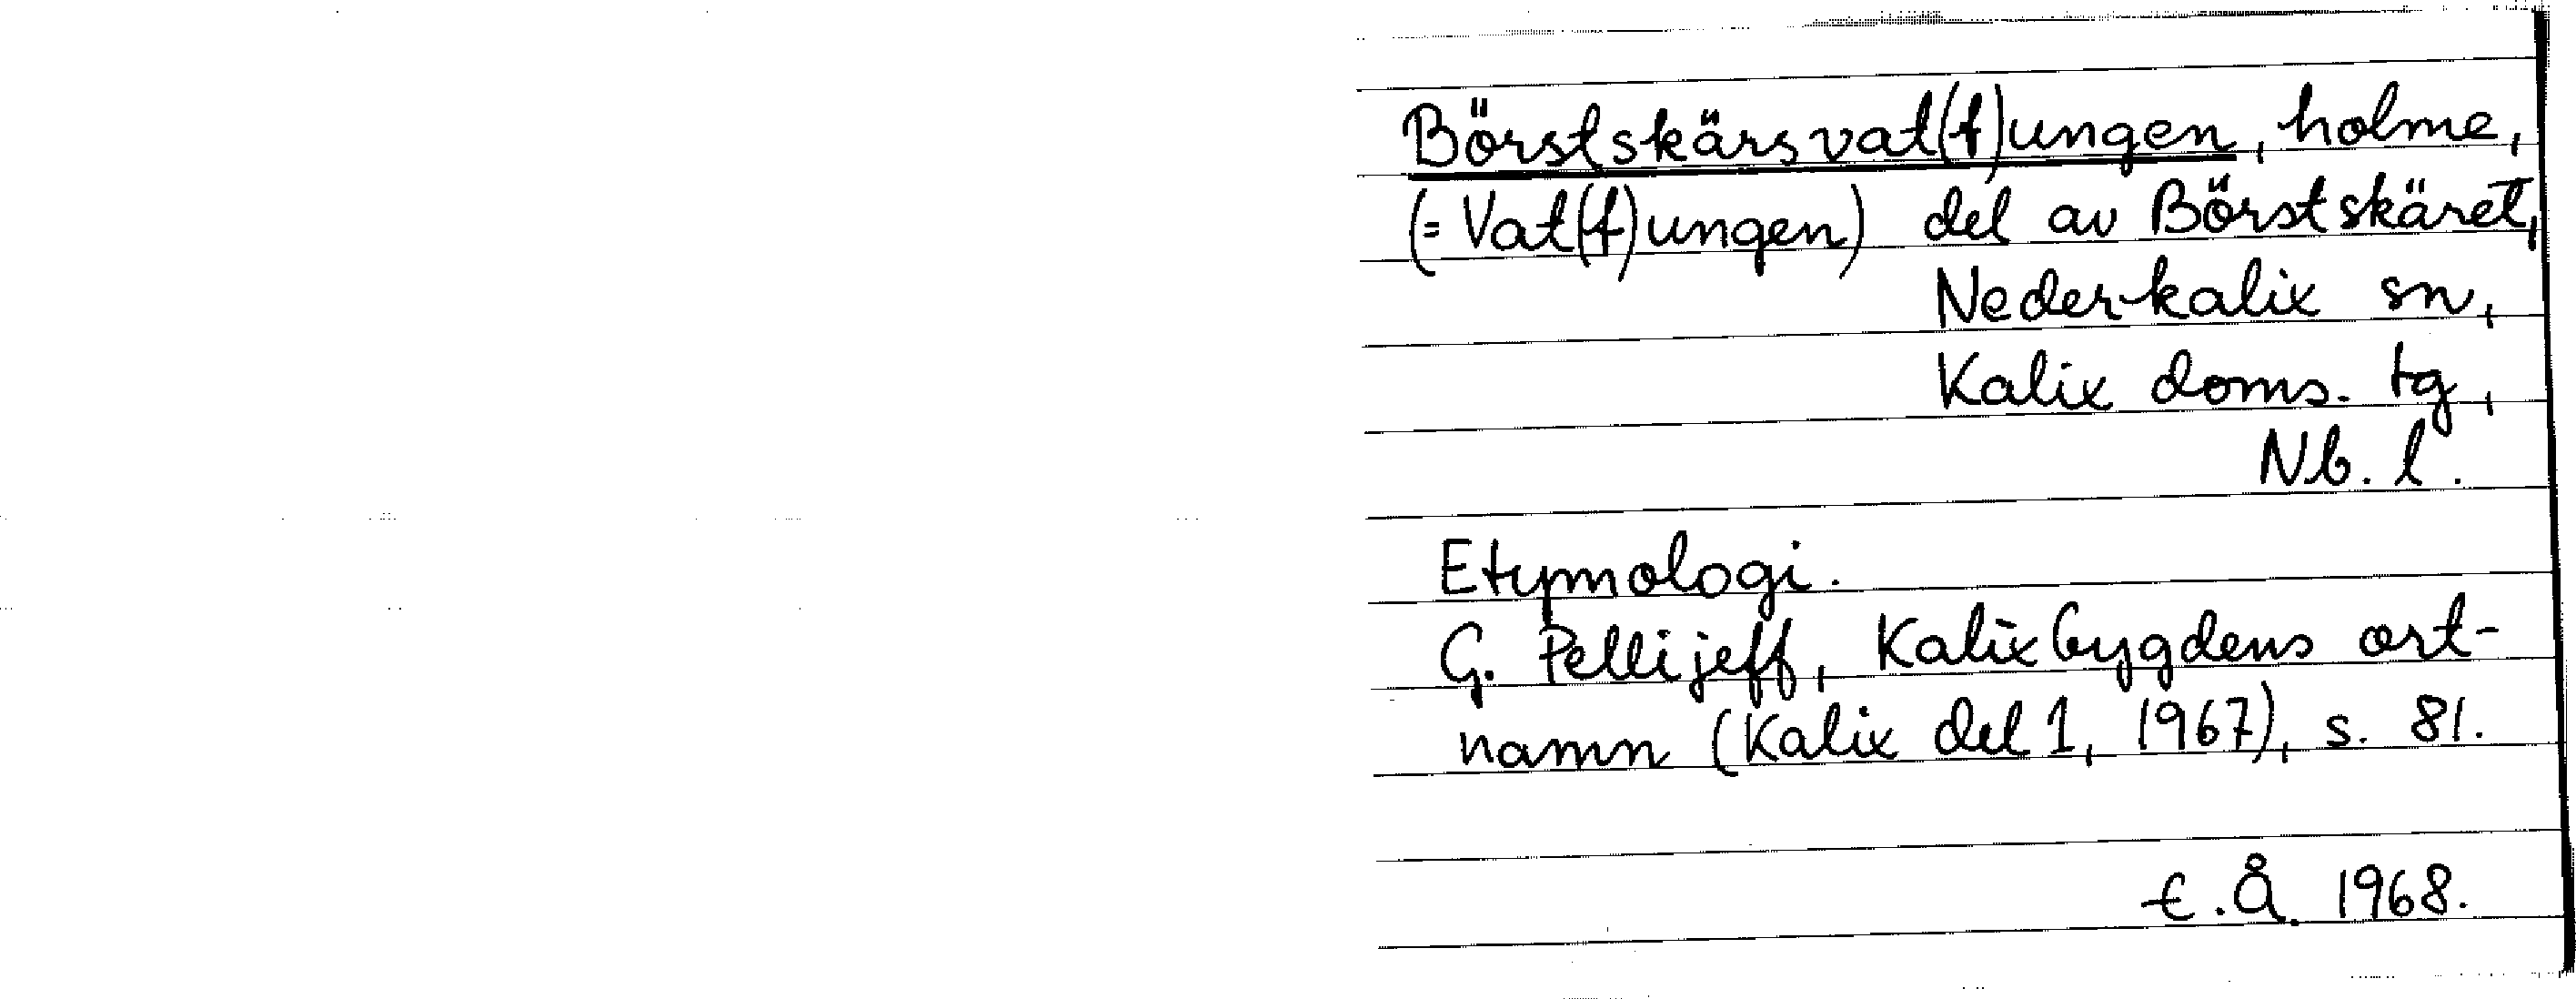 Börstskärsvat(t)ungen, holme,
(= Vat(t)ungen) del av Börstskäret,
Nederkalix sn,
Kalix doms. tg,
Nb. l.
Etymologi.
G. Pellijeff, Kalixbygdens ort-
namn (Kalix del 1, 1967), s. 81.
E.Å. 1968.